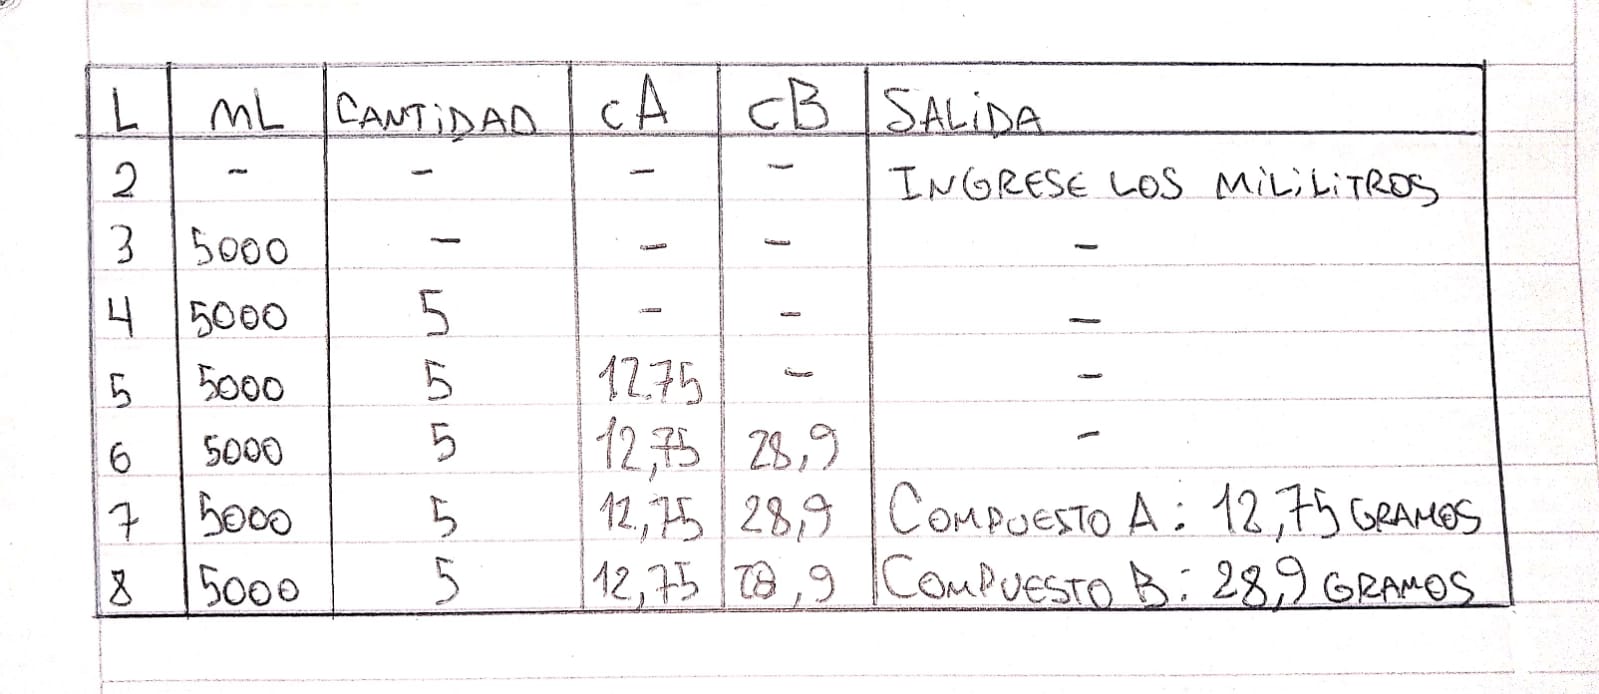 L mL CANTIDAD cA cB SALIDA
2 - - - - INGRESE LOS MILILITROS
3 5000 - - - -
4 5000 5 - - -
5 5000 5 12.75 - -
6 5000 5 12,75 28,9 -
7 5000 5 12,75 28,9 COMPUESTO A: 12,75 GRAMOS
8 5000 5 12,75 28,9 COMPUESTO B: 28,9 GRAMOS